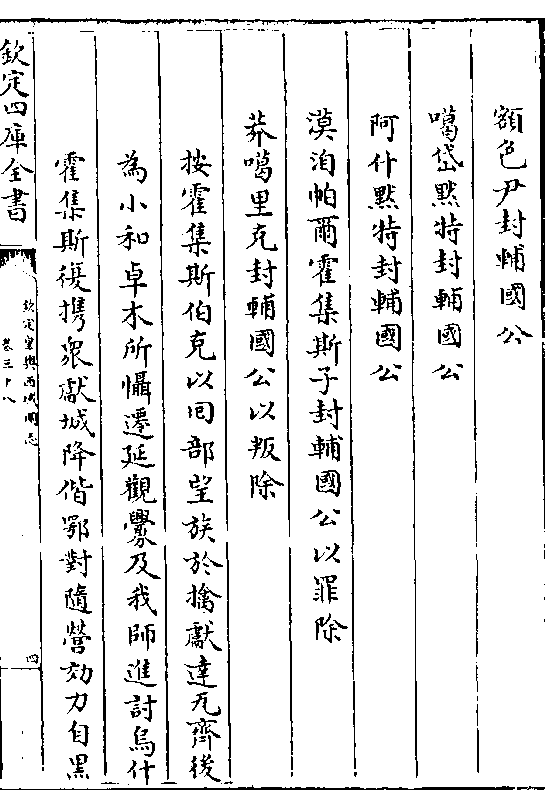 額色尹封輔國公
噶岱黙特封輔國公
阿什黙特封輔國公
漠洎帕爾霍集斯子封輔國公以罪除
莽噶里克封輔國公以叛除
按霍集斯伯克以回部望族於擒獻達瓦齊後
為小和卓木所懾遷延觀釁及我師進討烏什
霍集斯復携衆獻城降偕鄂對隨營効力自黑
欽定四庫全書
欽定皇輿西域圖志
卷三十八
四